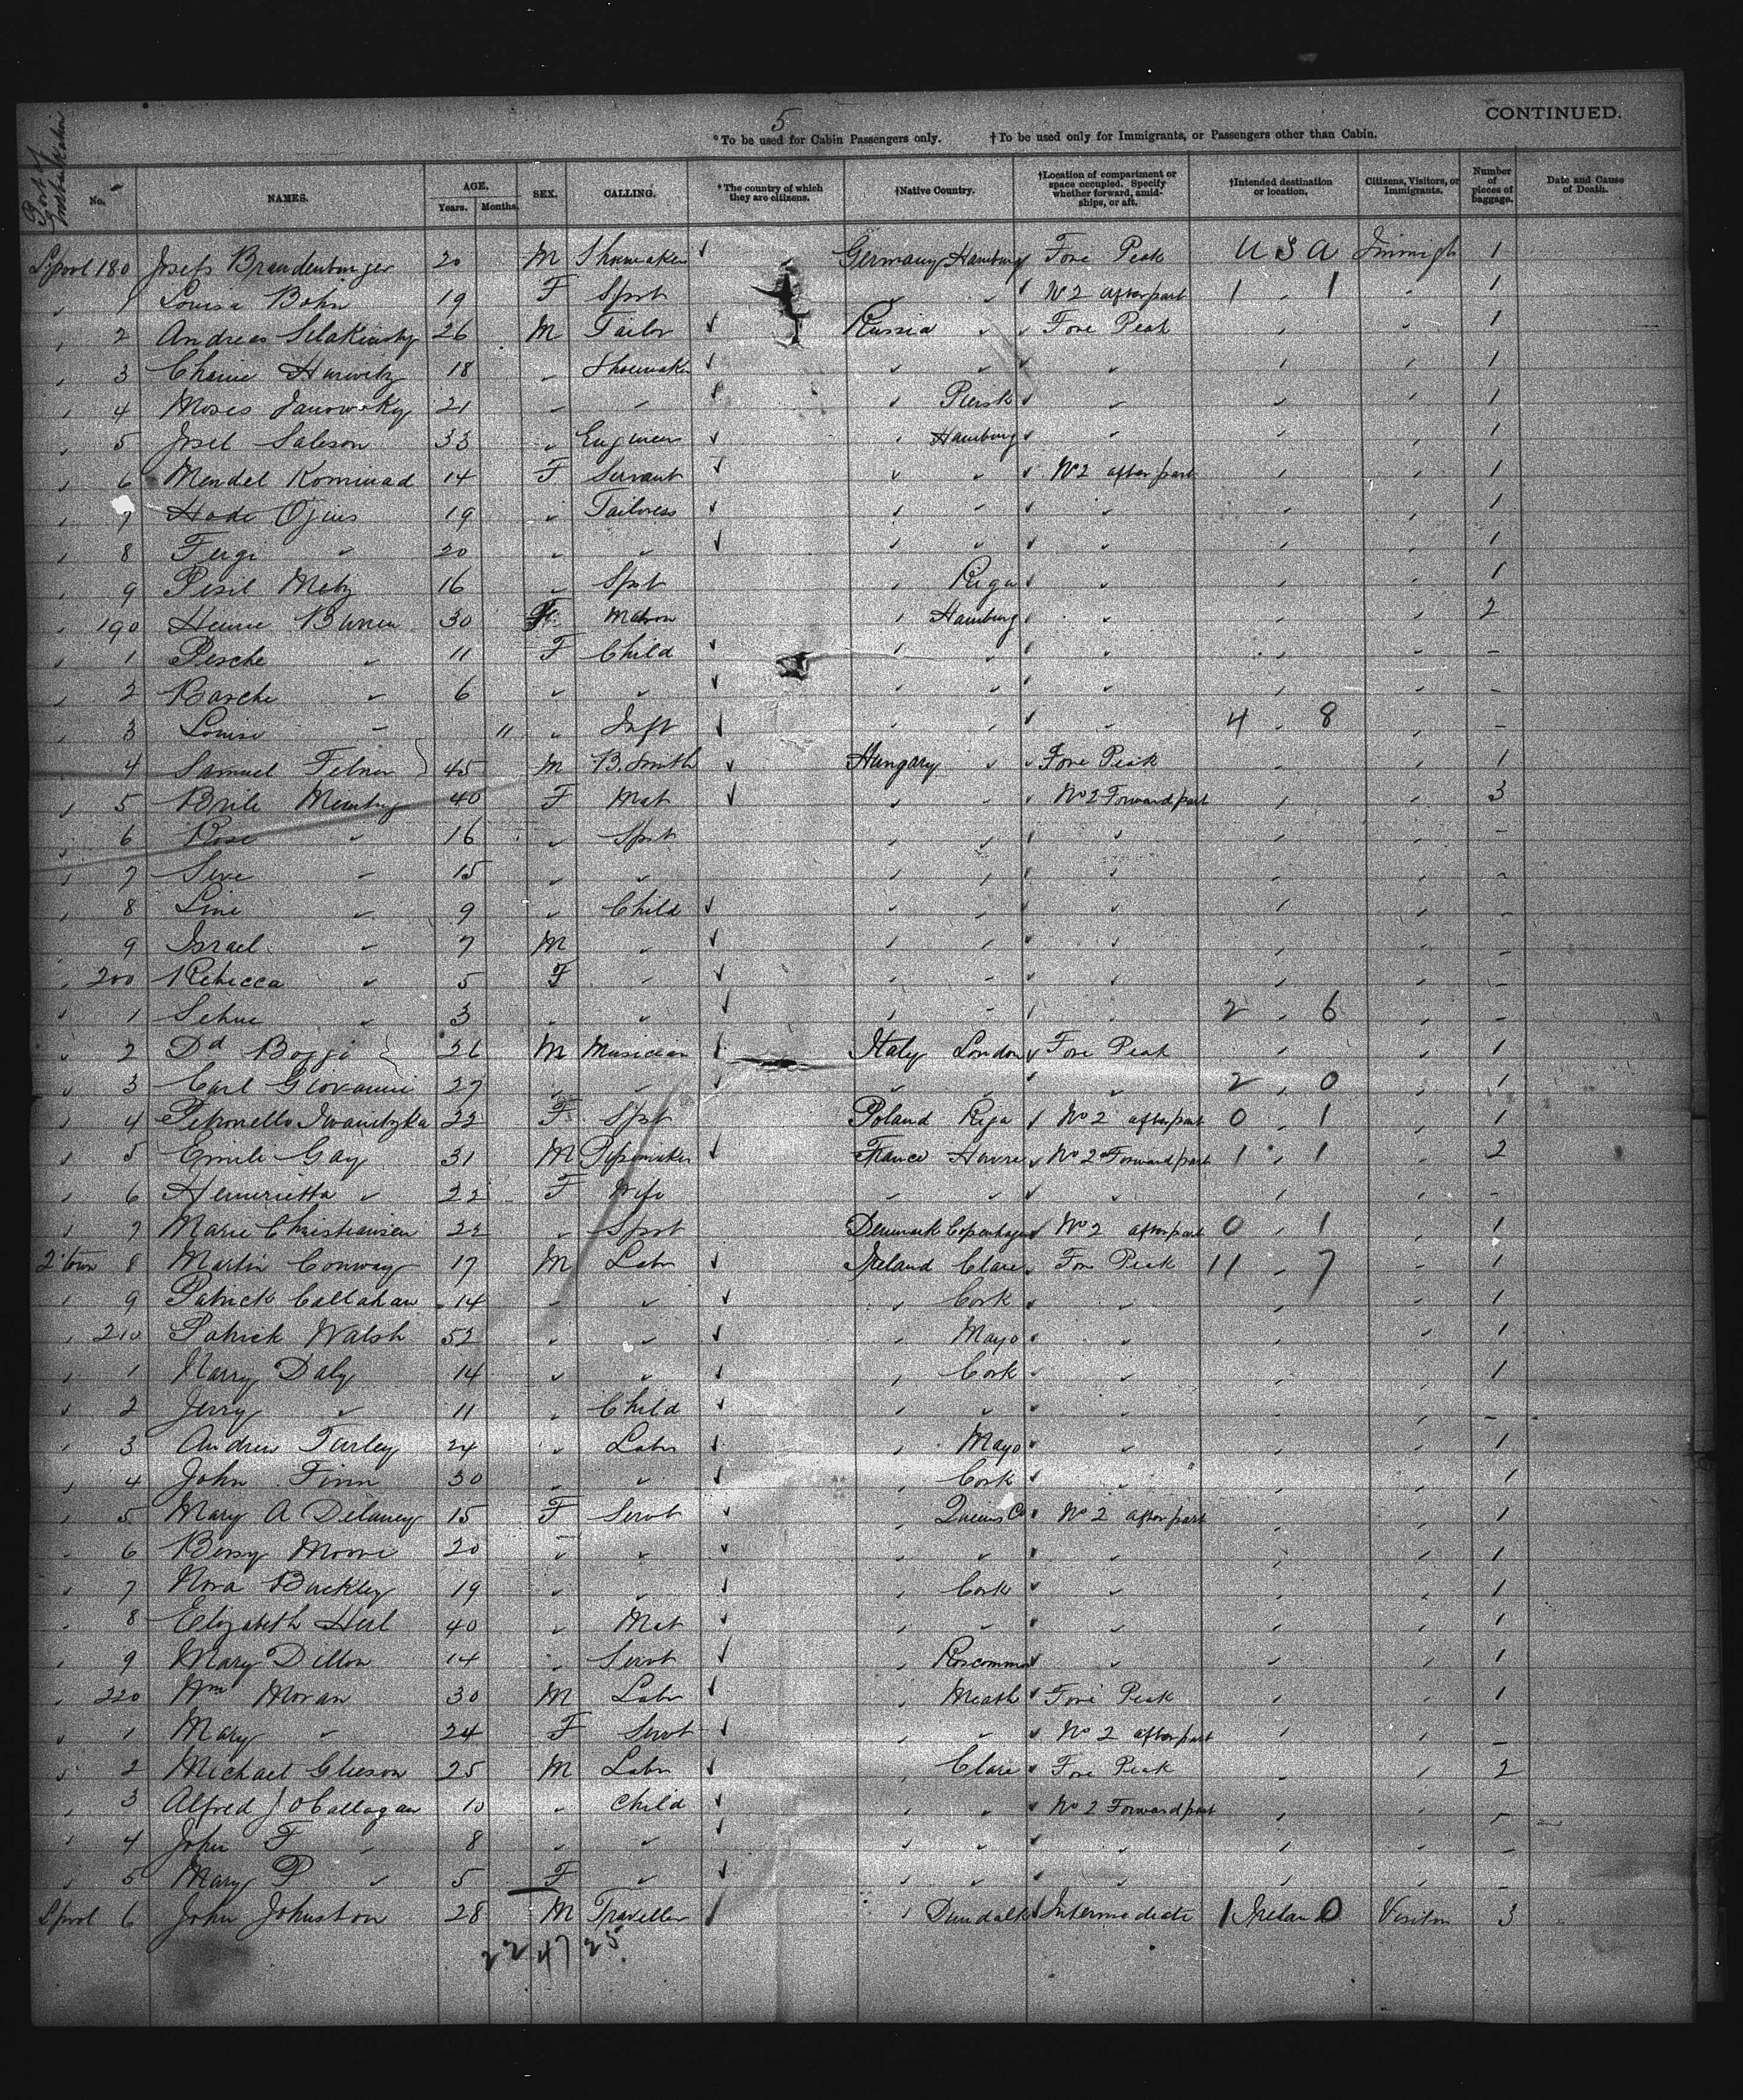 CONTINUED.
5
*To be used for Cabin Passengers only. †To be used only for Immigrants, or Passengers other than Cabin.
Port of Embarkation No. NAMES. AGE. Years. Months. SEX. CALLING. *The country of which they are citizens. †Native Country. †Location of compartment or space occupied. Specify whether forward, amidships, or aft. †Intended destination or location. Citizens, Visitors, or Immigrants. Number of pieces of baggage. Date and Cause of Death.
Lpool 180 Josefs Brandenburger 20 M Shoemaker ✓ Germany Hamburg Fore Peak U S A Immigt 1
" 1 Louisa Bohn 19 F Spst " " No 2 after part 1 " 1 " 1
" 2 Andreas 26 M Tailor ✓ Russia " Fore Peak " " 1
" 3 Chaine Hurwitz 18 " Shoemaker ✓ " " " " " 1
" 4 Moses Janowsky 21 " " ✓ " " " " 1
" 5 Josel Saleson 33 " Engineer ✓ " Hamburg " " " 1
" 6 Mendel Kominad 14 F Servant ✓ " " No 2 after part " " 1
" 7 Hode Ojius 19 " Tailoress ✓ " " " " " 1
" 8 Feige " 20 " " ✓ " " " " " 1
" 9 Pesil Metz 16 " Spst " Riga " " " 1
" 190 30 F Matron " Hamburg " " " 2
" 1 Pesche " 11 F Child ✓ " " " " " -
" 2 Basche " 6 " " ✓ " " " " " -
" 3 Louise " 11 " Inft ✓ " " " 4 " 8 " -
4 Samuel Felner 45 M B. Smith ✓ Hungary " Fore Peak " " 1
" 5 Brile 40 F Mat ✓ " " No 2 Forward part " " 3
" 6 Rose " 16 " Spst " " " " " -
" 7 Seve " 15 " " " " " " " -
" 8 Line " 9 " Child ✓ " " " " " -
" 9 Israel " 7 M " ✓ " " " " " -
" 200 Rebecca " 5 F " ✓ " " " " " -
" 1 " 3 " " ✓ " " " 2 " 6 " -
" 2 Dd Boggi 26 M Musician ✓ Italy London Fore Peak " " 1
" 3 Carl Giovanni 27 " " ✓ " " " 2 " 0 " 1
" 4 Petronella Iwanitzka 22 F Spst Poland Riga No 2 after part 0 " 1 " 1
" 5 Emile Gay 31 M Pipemaker ✓ France Havre No 2 Forward part 1 " 1 " 2
" 6 Henrietta " 22 F Wife " " " " " -
" 7 Marie Christiansen 22 " Spst Denmark Copenhagen No 2 after part 0 " 1 " 1
2'town 8 Martin Conway 17 M Labr ✓ Ireland Clare Fore Peak 11 " 7 " 1
" 9 Patrick Callahan 14 " " ✓ " Cork " " " 1
" 210 Patrick Walsh 52 " " ✓ " Mayo " " " 1
" 1 Harry Daly 14 " " ✓ " Cork " " " 1
" 2 Jerry " 11 " Child ✓ " " " " " -
" 3 Andrew Turley 24 " Labr ✓ " Mayo " " " 1
" 4 John Finn 30 " " ✓ " Cork " " " 1
" 5 Mary A Delaney 15 F Servt ✓ " Queens Co No 2 after part " " 1
" 6 Bessy Moore 20 " " ✓ " " " " " 1
" 7 Nora Buckley 19 " " ✓ " Cork " " " 1
" 8 Elizabeth 40 " Mat ✓ " " " " " 1
" 9 Mary Dillon 14 " Servt ✓ " Roscommon " " " 1
" 220 Wm Moran 30 M Labr ✓ " Meath Fore Peak " " 1
" 1 Mary " 24 F Servt ✓ " " No 2 after part " " -
" 2 Michael Gleeson 25 M Labr ✓ " Clare Fore Peak " " 2
" 3 Alfred J OCallagan 10 " Child ✓ " " No 2 Forward part " " -
" 4 John F " 8 " " ✓ " " " " " -
" 5 Mary P " 5 F " ✓ " " " " " -
Lpool 6 John Johnston 28 M Traveller " Dundalk Intermediate 1 Ireland 0 Visitor 3
22 47 25